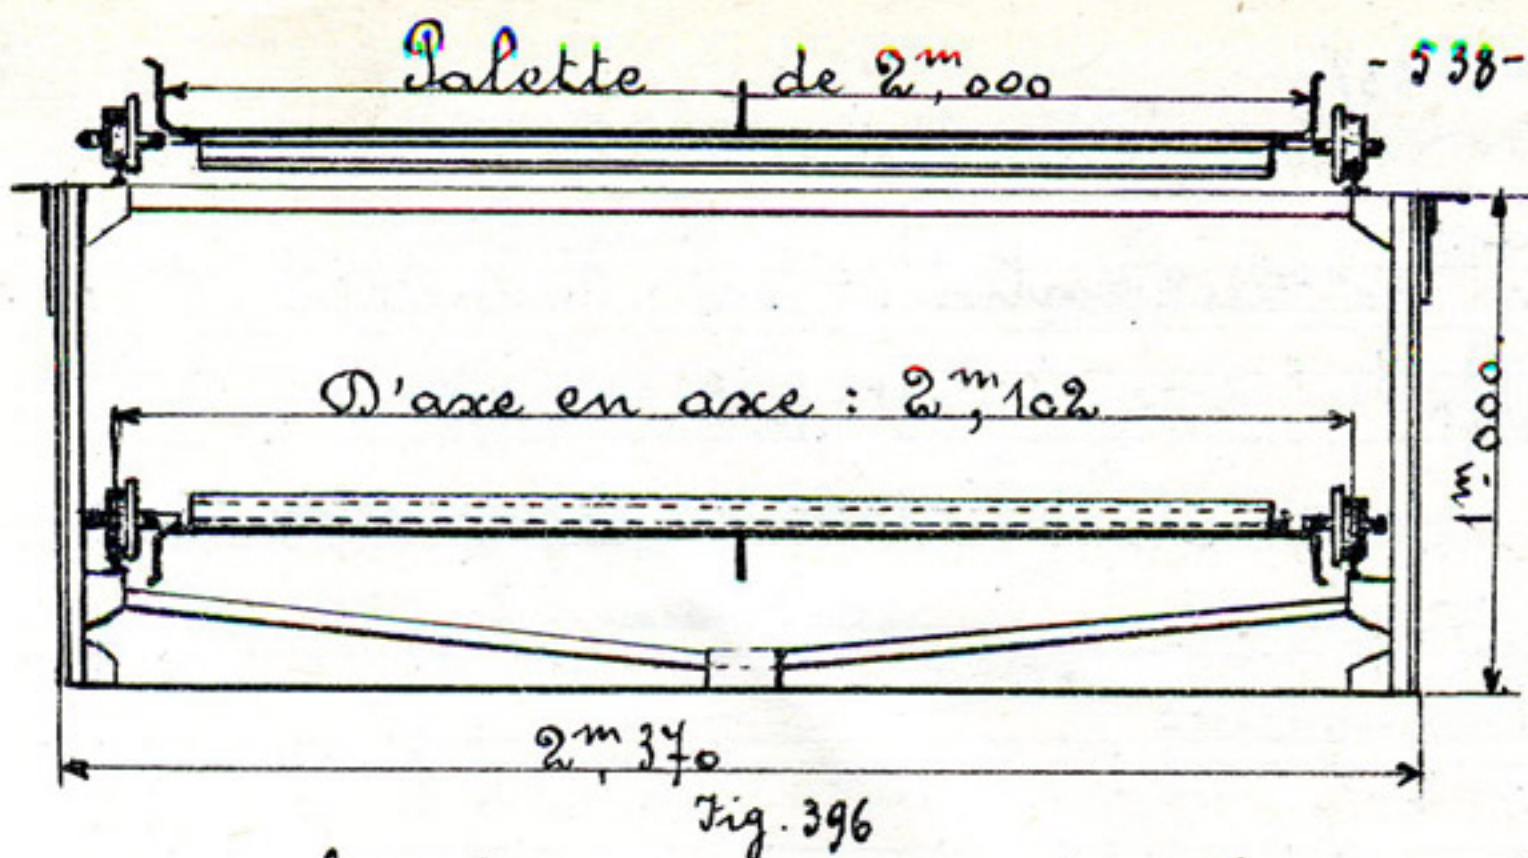 Palette de 2m,000
- 538 -
D'axe en axe : 2m,102
1m.000
2m,370
Fig. 396